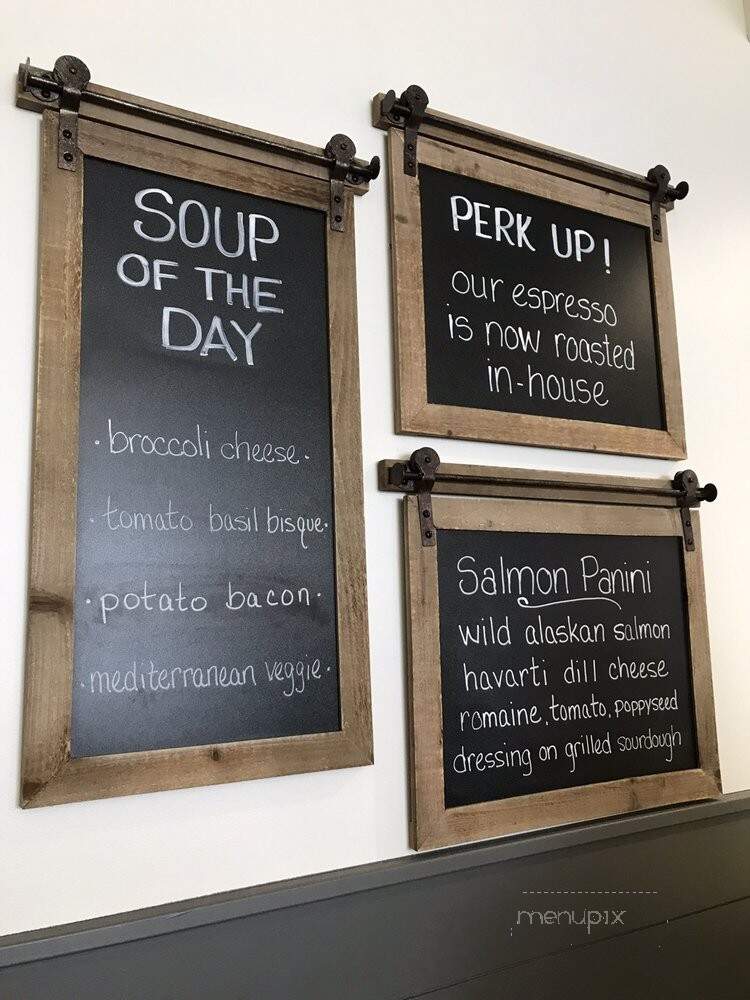 SOUP
OF THE
DAY
·broccoli cheese·
·tomato basil bisque·
·potato bacon·
·mediterranean veggie·
PERK UP!
our espresso
is now roasted
in-house
Salmon Panini
wild alaskan salmon
havarti dill cheese
romaine, tomato, poppyseed
dressing on grilled sourdough
menupix